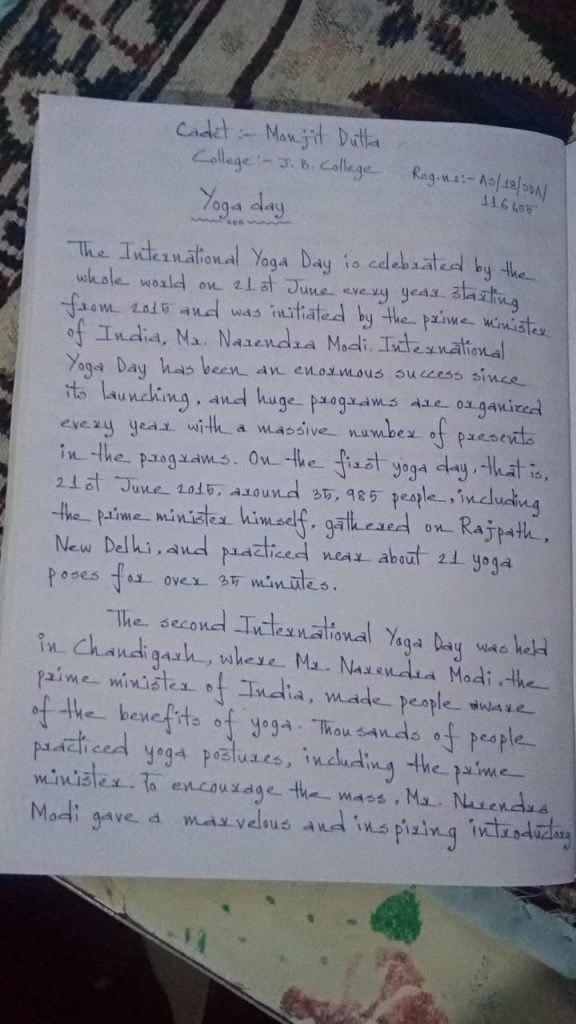 Cadet :- Monjit Dutta
College :- J. B. College
Reg.no:- AS/18/SDA/
116605
Yoga day
The International Yoga Day is celebrated by the
whole world on 21st June every year starting
from 2015 and was initiated by the prime minister
of India, Mr. Narendra Modi. International
Yoga Day has been an enormous success since
its launching, and huge programs are organized
every year with a massive number of presents
in the programs. On the first yoga day, that is,
21st June 2015, around 35,985 people, including
the prime minister himself, gathered on Rajpath,
New Delhi, and practiced near about 21 yoga
poses for over 35 minutes.
The second International Yoga Day was held
in Chandigarh, where Mr. Narendra Modi, the
prime minister of India, made people aware
of the benefits of yoga. Thousands of people
practiced yoga postures, including the prime
minister. To encourage the mass, Mr. Narendra
Modi gave a marvelous and inspiring introductory